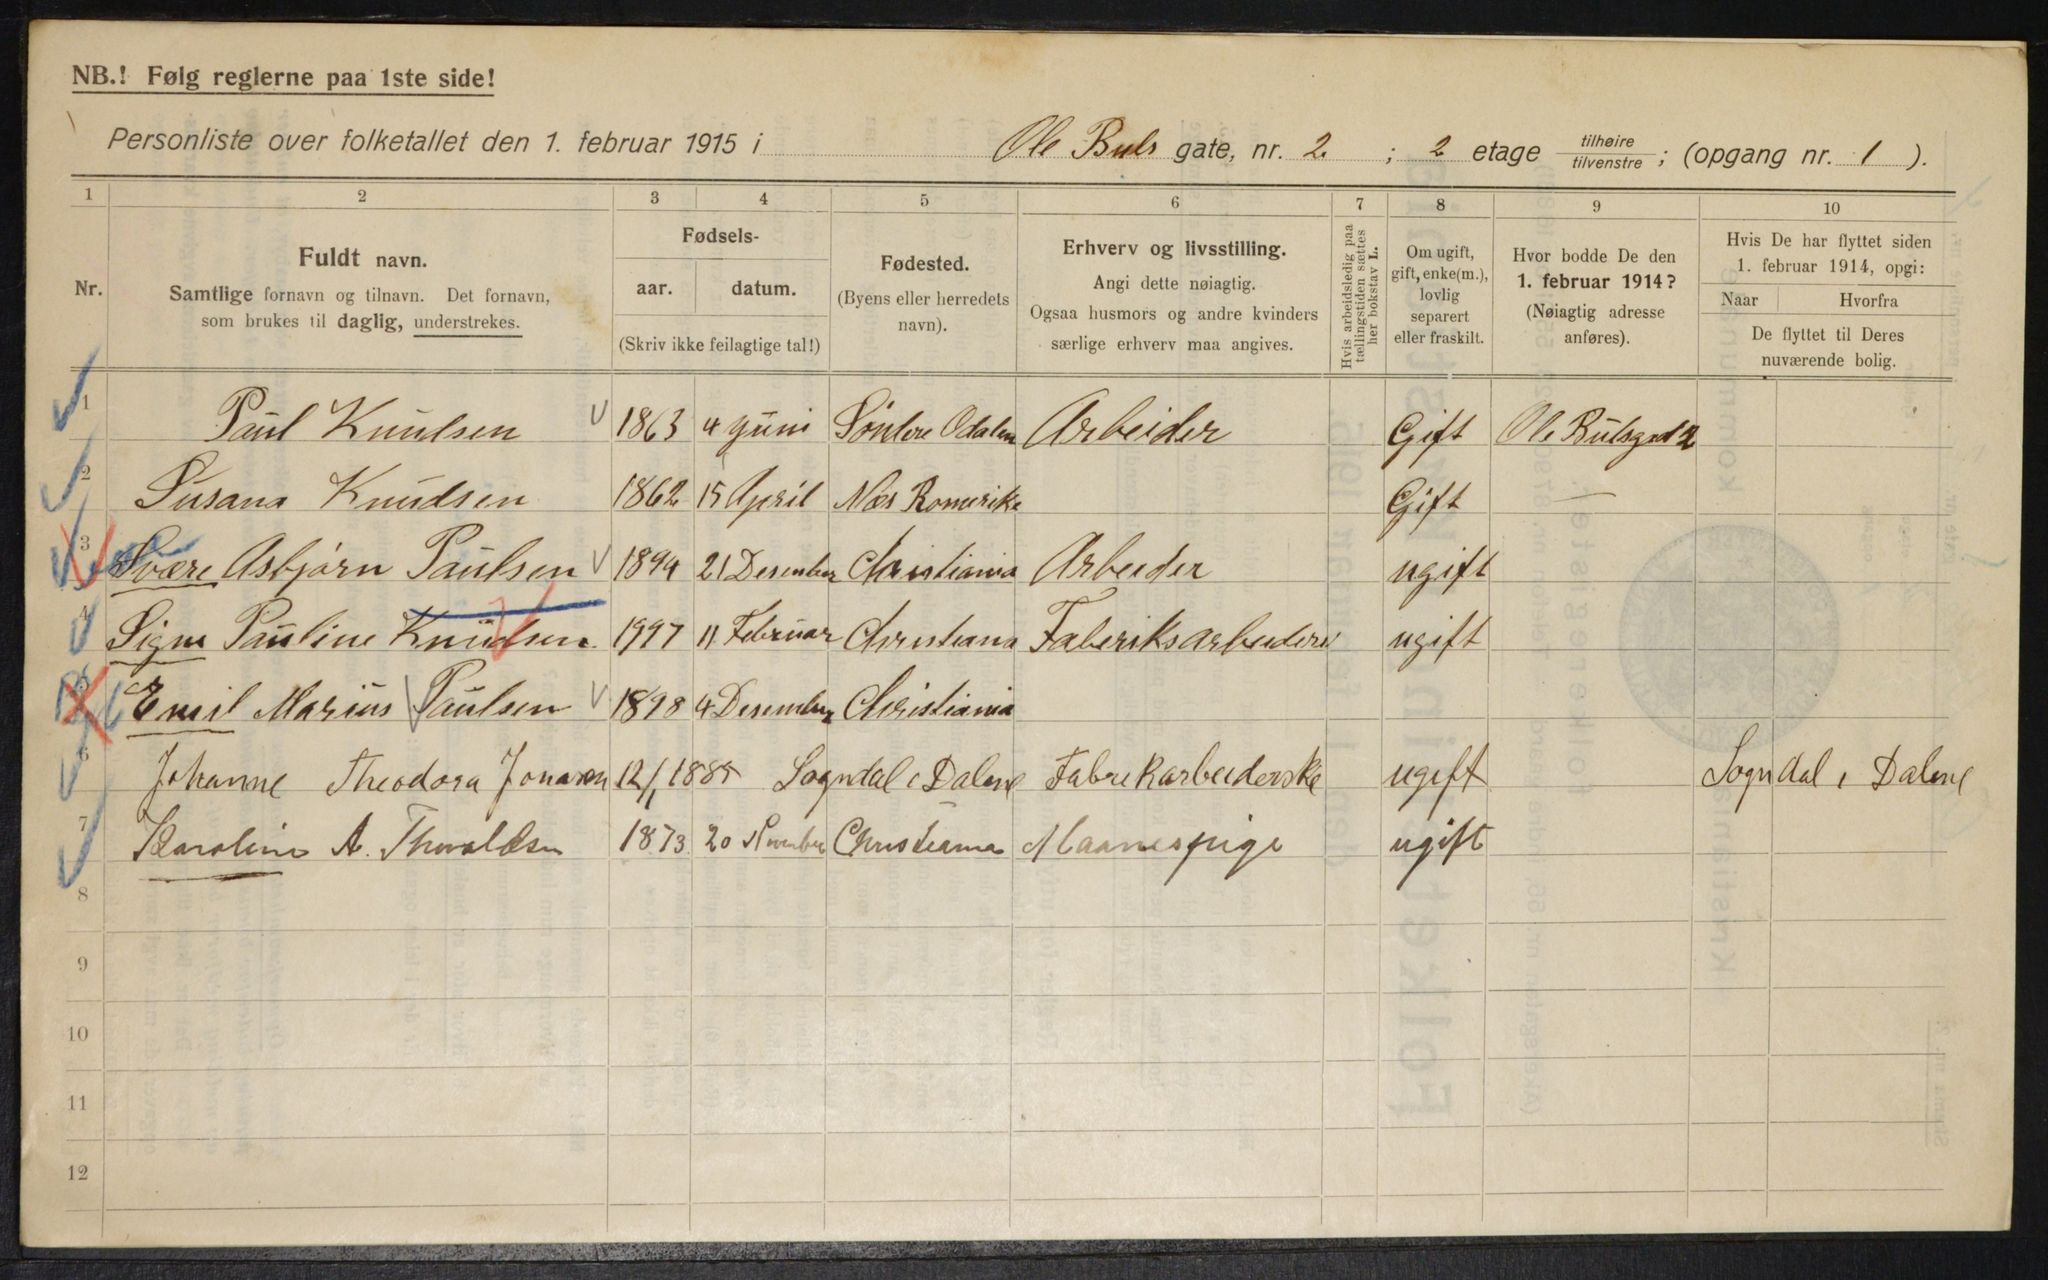 NB.! Følg reglerne paa 1ste side!
Personliste over folketallet den 1. februar 1915 i Ole Buls gate, nr. 2 ; 2 etage tilhøire tilvenstre ; (opgang nr. 1 ).
1 2 3 4 5 6 7 8 9 10
Nr.
Fuldt navn.
Samtlige fornavn og tilnavn. Det fornavn,
som brukes til daglig, understrekes.
Fødsels-
aar. datum.
(Skriv ikke feilagtige tal!)
Fødested.
(Byens eller herredets
navn).
Erhverv og livsstilling.
Angi dette nøiagtig.
Ogsaa husmors og andre kvinders
særlige erhverv maa angives.
Hvis arbeidsledig paa
tællingstiden sættes
her bokstav L.
Om ugift,
gift, enke(m.),
lovlig
separert
eller fraskilt.
Hvor bodde De den
1. februar 1914?
(Nøiagtig adresse
anføres).
Hvis De har flyttet siden
1. februar 1914, opgi:
Naar Hvorfra
De flyttet til Deres
nuværende bolig.
1 Paul Knudsen 1863 4 juni Søndre Odalen Arbeider Gift Ole Bulsgad 2
2 Susana Knudsen 1862 15 April Næs Romerike Gift —
3 Svære Asbjørn Paulsen 1894 21 Desember Christiania Arbeider ugift
4 Signe Pauline Knudsen 1997 11 Februar Christiana Faberiksarbeider ugift
5 Emil Marius Paulsen 1898 4 Desember Christiania
6 Johanne Theodora Jonasen 12/1 1885 Sogndal i Dalene Fabrekarbeiderske ugift Sogndal i Dalene
7 Karoline A. Thvaldsen 1873 20 November Christiania Maanespige ugift
8
9
10
11
12